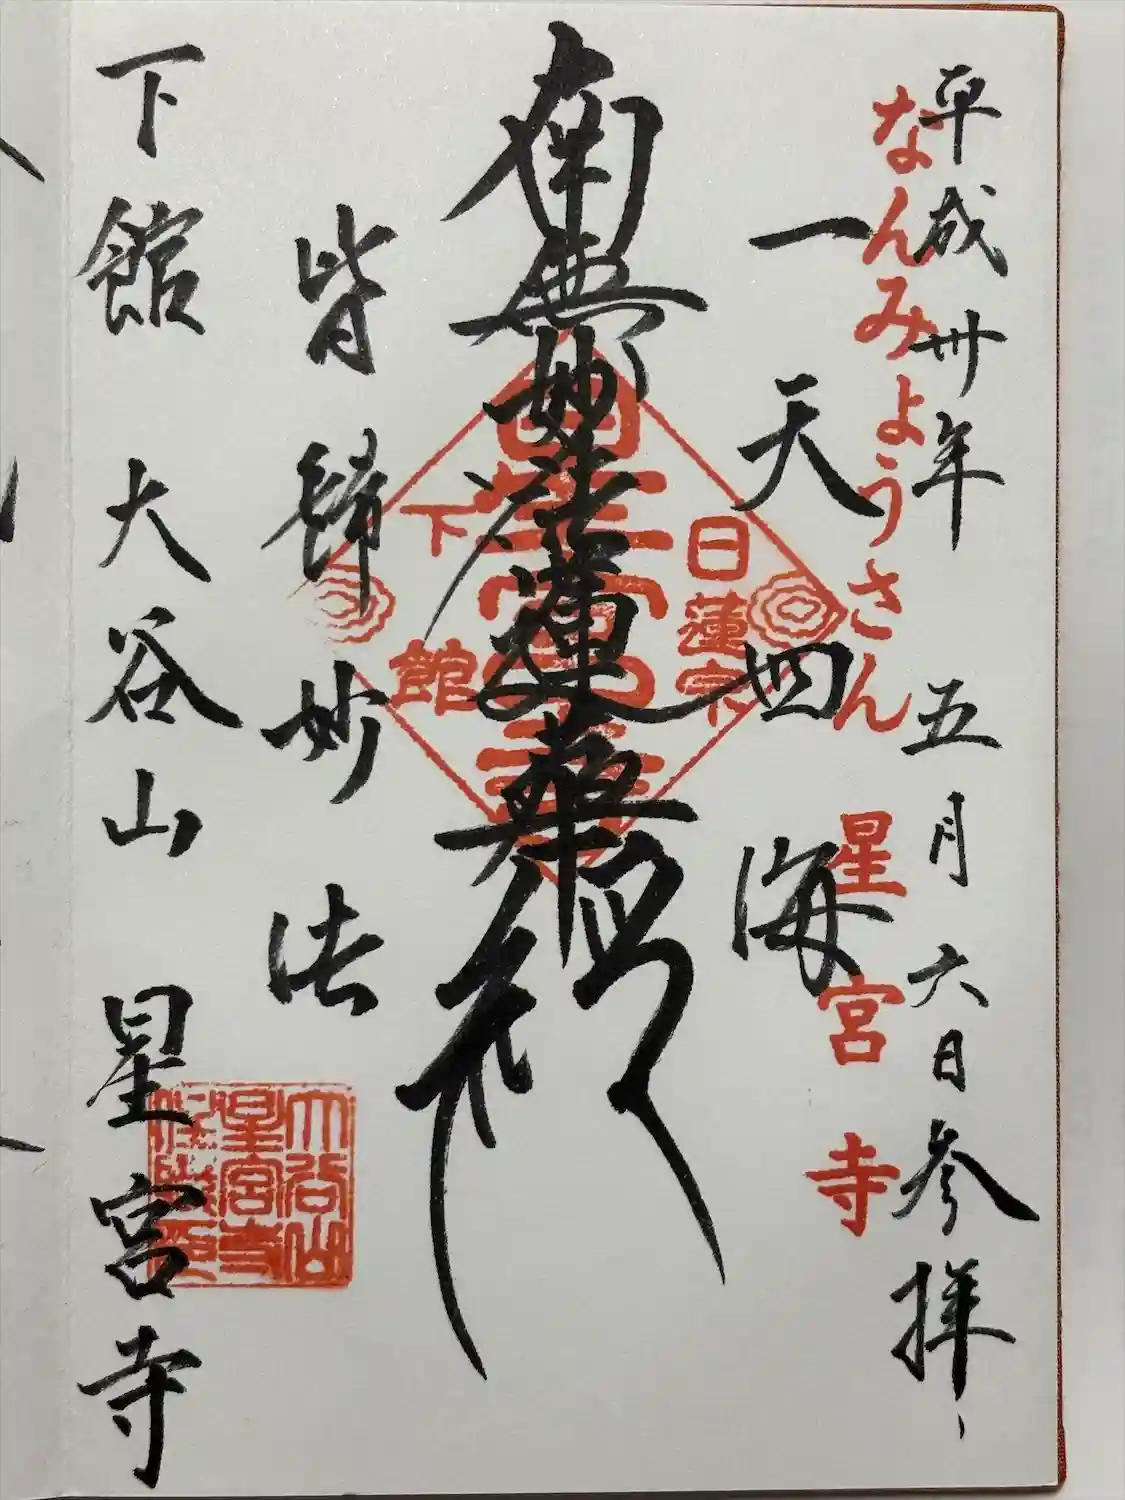 平成卅年 五月六日参拝
なんみょうさん
星宮寺
一天四海
南無妙法蓮華経
日蓮宗
星宮寺
下館
皆歸妙法
下館 大谷山 星宮寺
大谷山
星宮寺